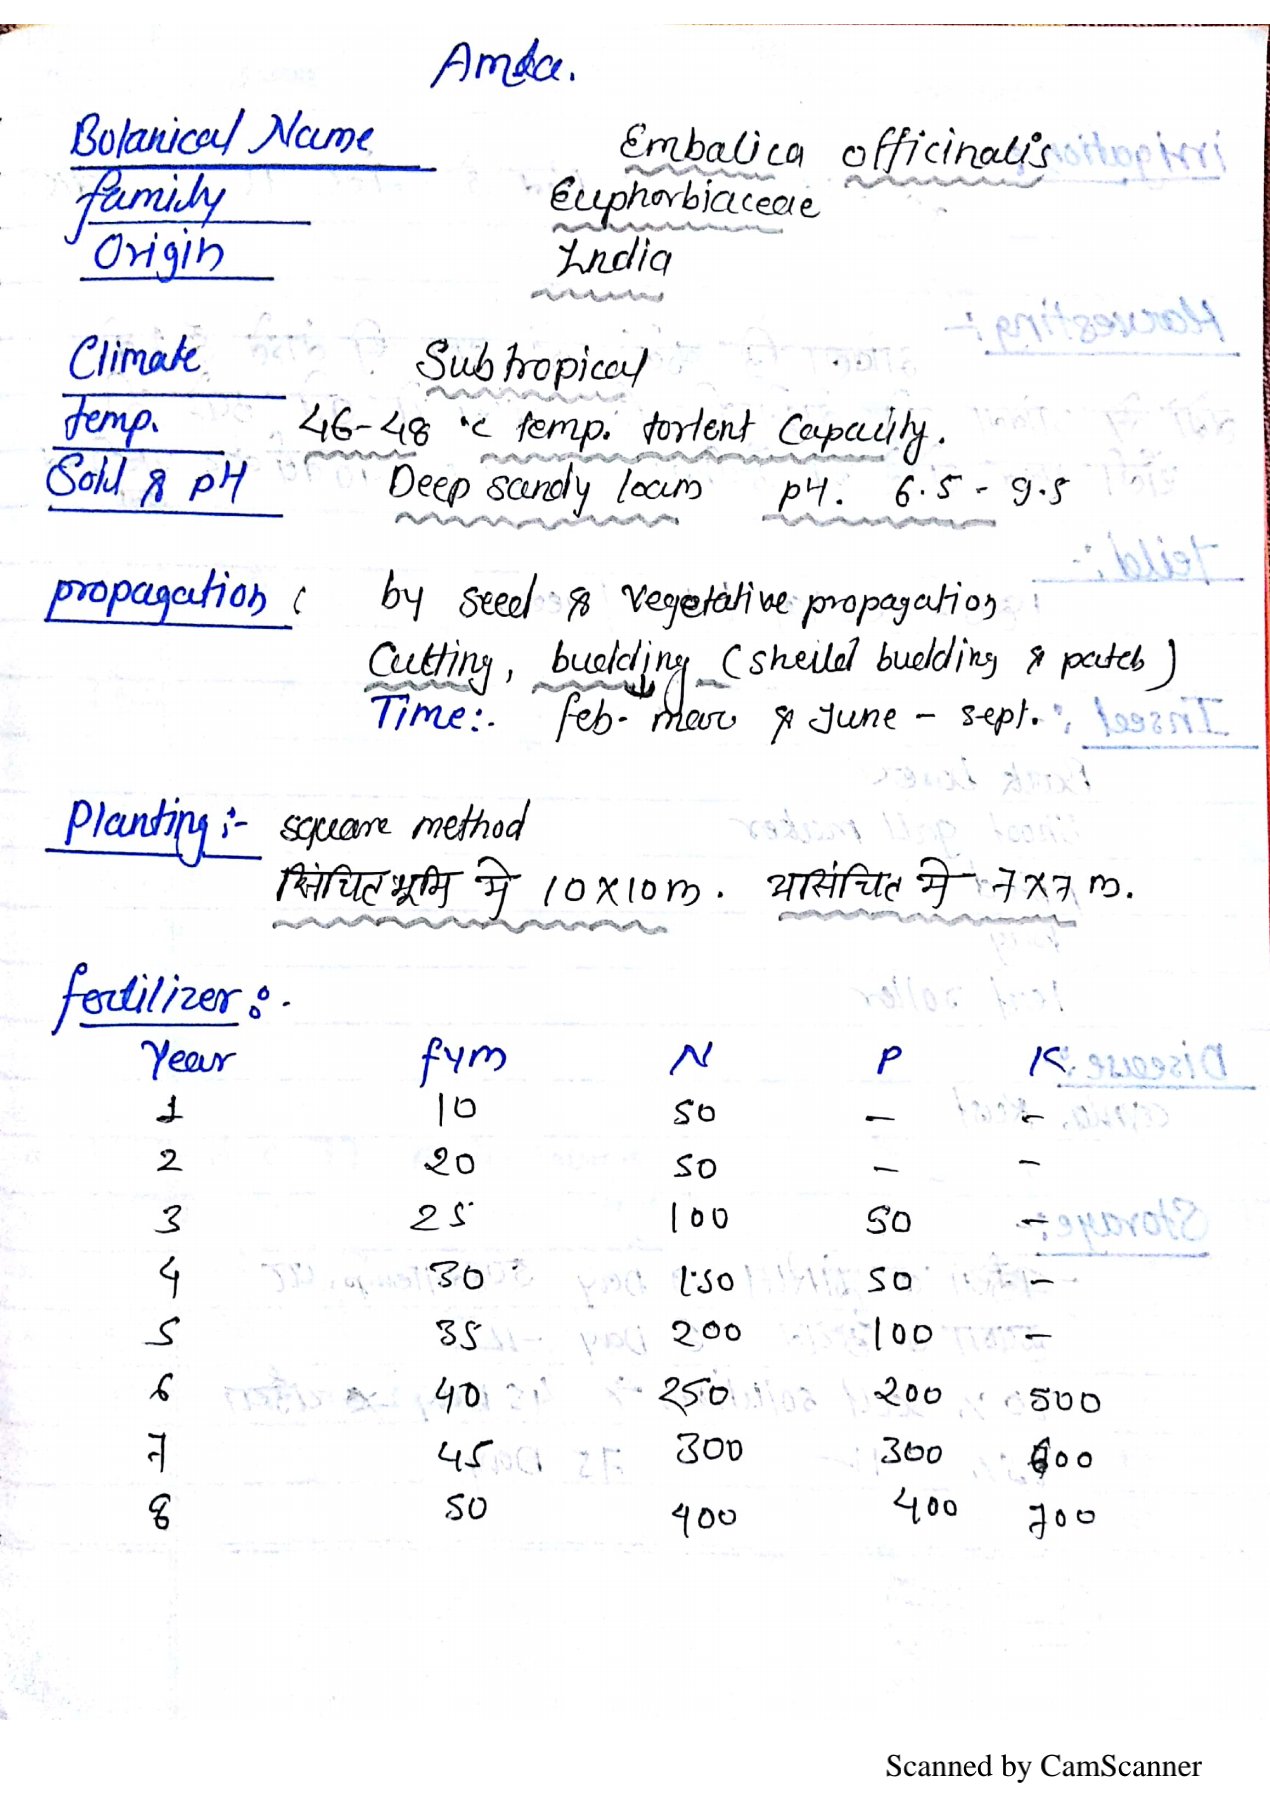 Amla.
Botanical Name Embalica officinalis
family Euphorbiaceae
Origin India
Climate Subtropical
temp. 46-48 °c temp. torlent Capacity.
Soil & pH Deep sandy loam pH. 6.5 - 9.5
propagation : by seed & vegetative propagation
Cutting, buedding (sheild buedding & patch)
Time:. feb- mar & June - sept.
Planting :- square method
सिंचित भूमि मे 10 X 10 m. असिंचित मे 7 X 7 m.
fertilizer :.
Year fym N P K
1 10 50 - -
2 20 50 - -
3 25 100 50 -
4 30 150 50 -
5 35 200 100 -
6 40 250 200 500
7 45 300 300 600
8 50 400 400 700
irrigation
Harvesting :-
Yeild :-
Insect :-
Disease :-
Storage :-
Scanned by CamScanner